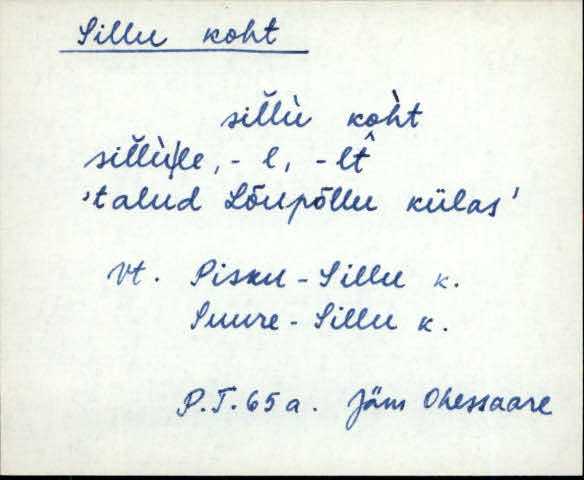 Sillu koht
sil̆lù kòh̀t
sil̆lù|le, - l, - lt̂
'talud Lõupõllu külas'
vt. Pisku - Sillu k.
Suure - Sillu k.
P.T. 65a. Jäm Ohessaare